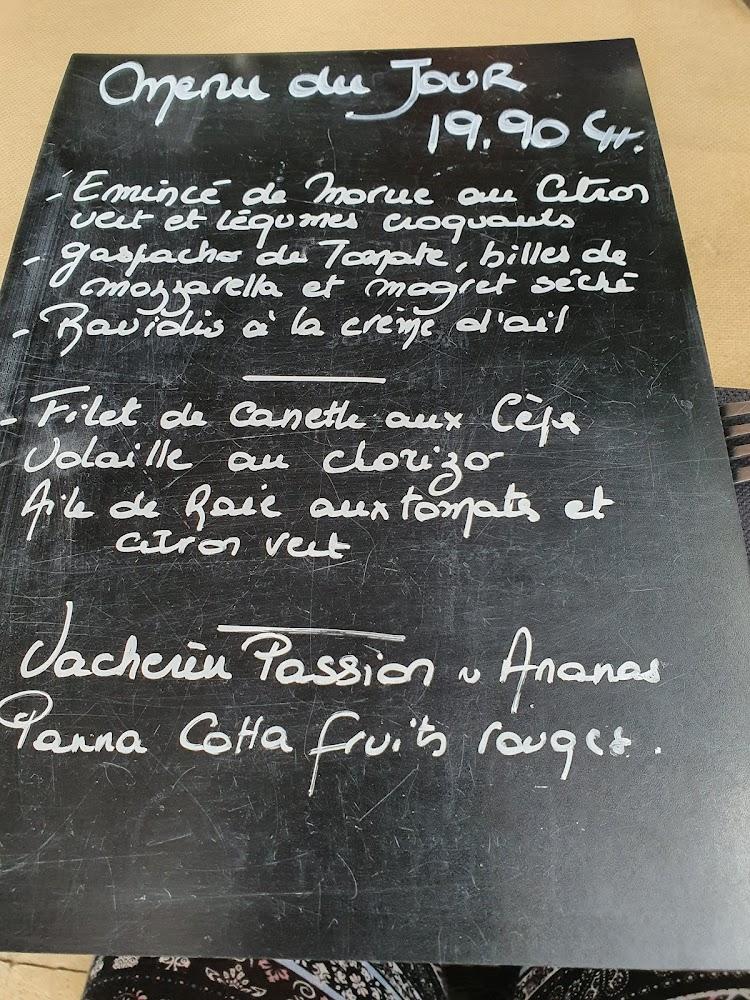 Menu du Jour
19.90
- Emincé de Morue au Citron
vert et légumes croquants
- gaspacho de Tomate, billes de
mozzarella et magret séché
- Ravioles à la crème d'ail
- Filet de canette aux Cèpes
Volaille au chorizo
Aile de Raie aux tomates et
citron vert
Vacherin Passion ~ Ananas
Panna Cotta fruits rouges.